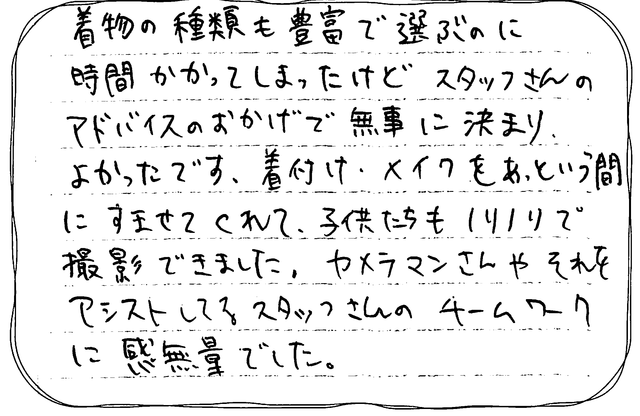 着物の種類も豊富で選ぶのに
時間かかってしまったけどスタッフさんの
アドバイスのおかげで無事に決まり、
よかったです、着付け・メイクをあっという間
にすませてくれて、子供たちもノリノリで
撮影できました。カメラマンさんやそれを
アシストしてるスタッフさんのチームワーク
に感無量でした。